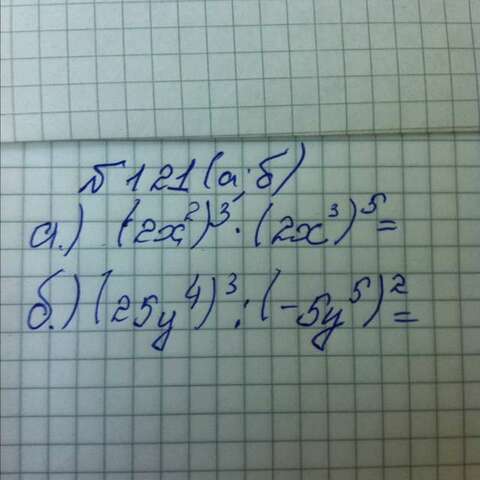 №121 (а; б)
а.) (2x²)³ · (2x³)⁵ =
б.) (25y⁴)³ : (-5y⁵)² =